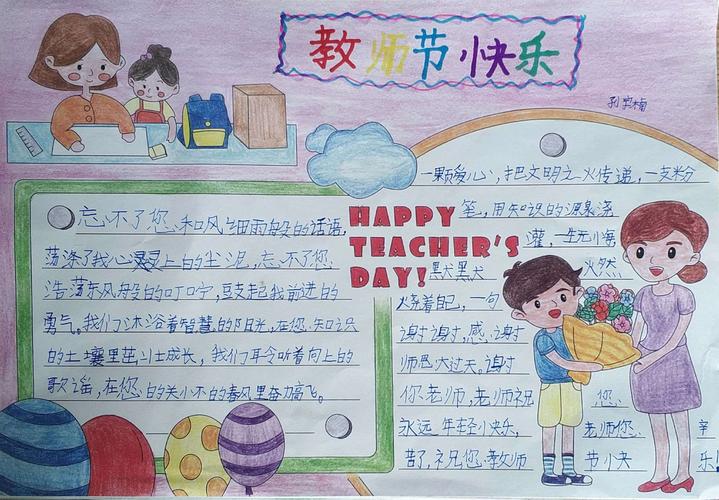 教师节快乐
孔宾楠
忘不了您和风细雨般的话语,
荡涤了我心灵上的尘泥,忘不了您
浩荡东风般的叮咛,鼓起我前进的
勇气。我们沐浴着智慧的阳光,在您知识
的土壤里茁壮成长,我们聆听着向上的
歌谣,在您的关怀的春风里奋力高飞。
HAPPY
TEACHER'S
DAY!
一颗爱心,把文明之火传递,一支粉
笔,用知识的源泉浇
灌,一生无悔
默默 火然
烧着自己,一句
谢谢谢,感谢
师恩大过天。谢谢
你老师,老师祝 您
永远年轻快乐, 老师您 辛
苦了,祝您教师 节快 乐!